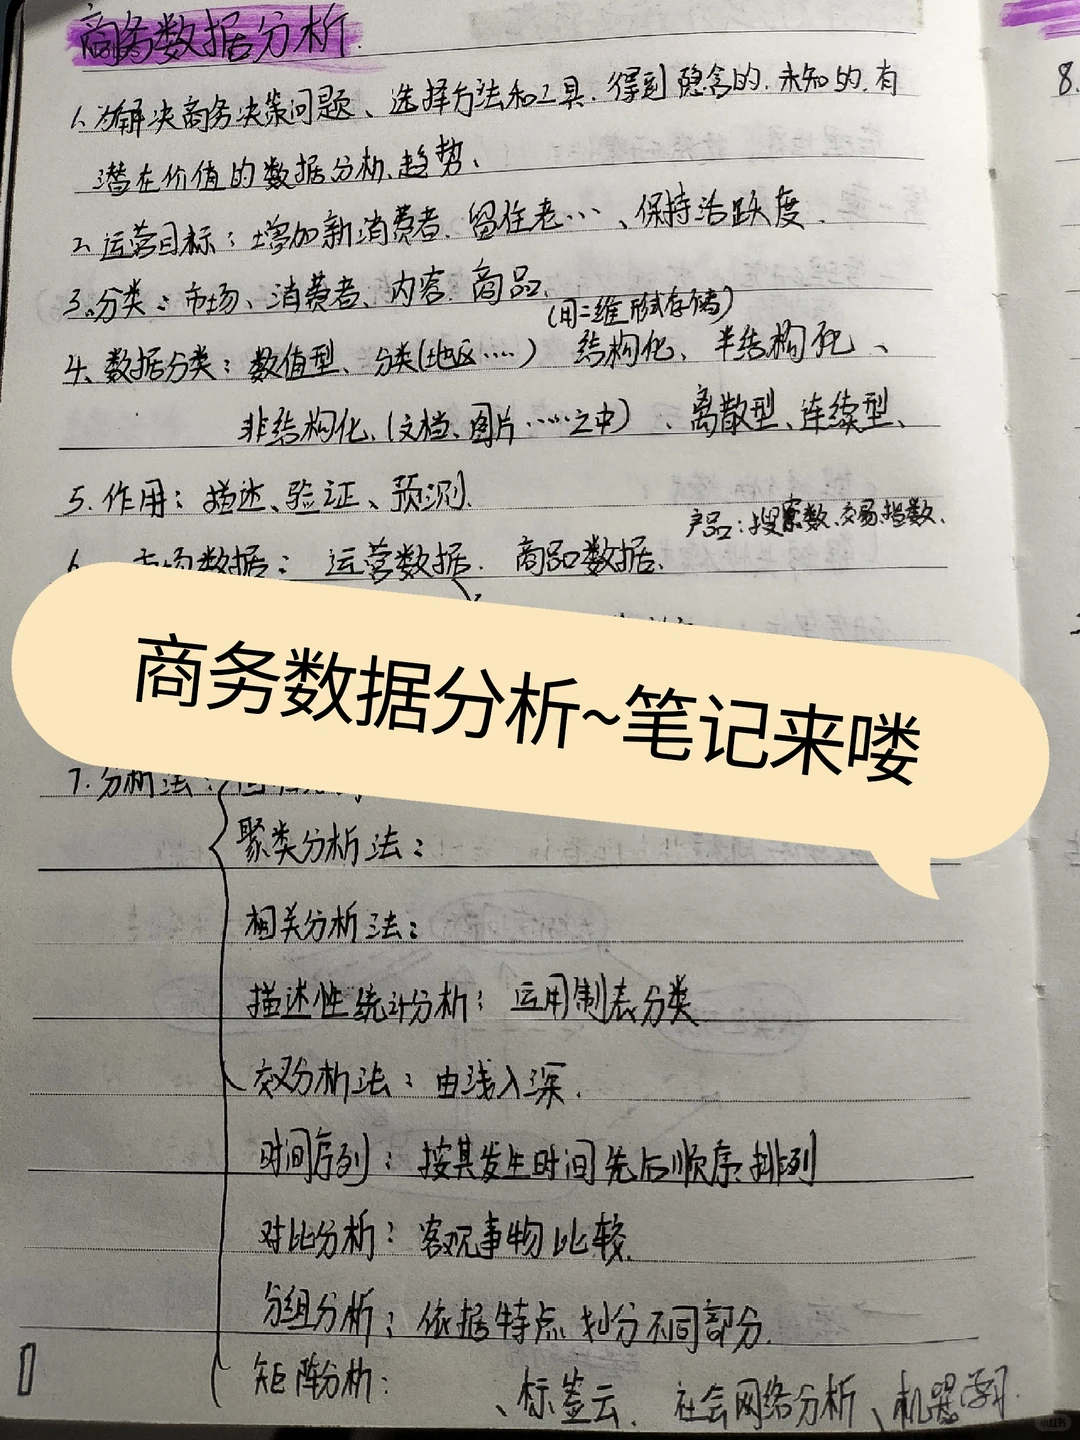 商务数据分析.
8.
1、为解决商务决策问题、选择方法和工具.得到隐含的.未知的.有
潜在价值的数据分析.趋势、
2、运营目标：增加新消费者.留住老…、保持活跃度.
3.分类：市场、消费者、内容.商品.
(用二维形式存储)
4、数据分类：数值型、分类(地区….) 结构化、半结构化、
非结构化、(文档、图片……之中)、离散型、连续型、
5.作用：描述、验证、预测.
产品：搜索数、交易指数、
6、市场数据：运营数据.商品数据.
商务数据分析~笔记来喽
7.分析法：
聚类分析法：
相关分析法：
描述性统计分析：运用制表分类
交叉分析法：由浅入深.
时间序列：按其发生时间先后顺序排列
对比分析：客观事物比较.
分组分析：依据特点划分不同部分.
矩阵分析：
、标签云.社会网络分析、机器学习.
小红书